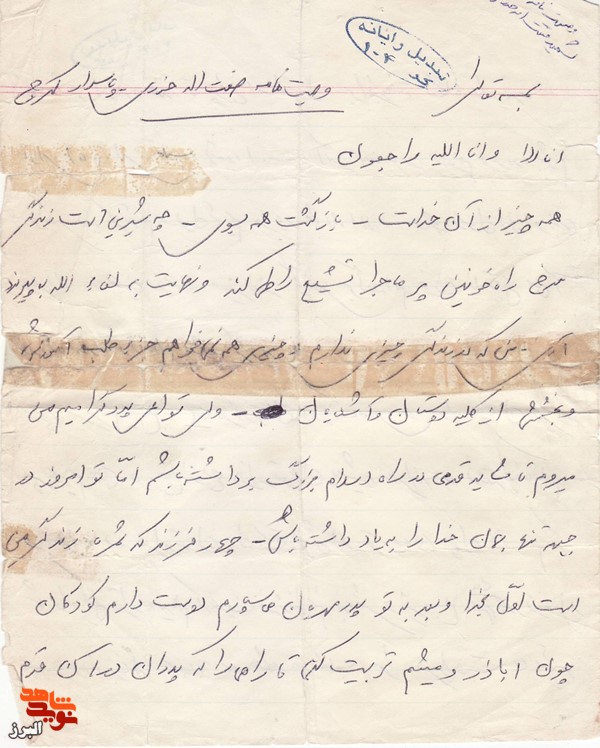 وصیت نامه
تبدیل و ایانه
بسمه تعالی
وصیت نامه صفت اله خدری - پاسدار کرج
انا لله وانا الیه راجعون
همه چیز از آن خداست - بازگشت همه بسوی - چه شیرین است زندگی
سرخ راه خونین پر ماجرا تشیع را طی کند و نهایت به لقاء الله به پیوندد
آری - من که در زندگی چیزی ندارم و چیزی هم نمیخواهم جز طلب آمرزش
و بخشش از کلیه دوستان و آشنایان - ولی تو ای پدر گرامیم من
میروم تا شاید قدمی در راه اسلام بزرگ برداشته باشم امّا تو امروز در
جبهه تنها چون خدا را به یاد داشته باش - چهار فرزند که ثمره زندگی من
است اوّل بخدا و بعد به تو پدر مهربان میسپارم دوست دارم کودکان
چون اباذر و میثم تربیت کنی تا راهی را که پدران در آن قدم
شاهد
نوید
البرز